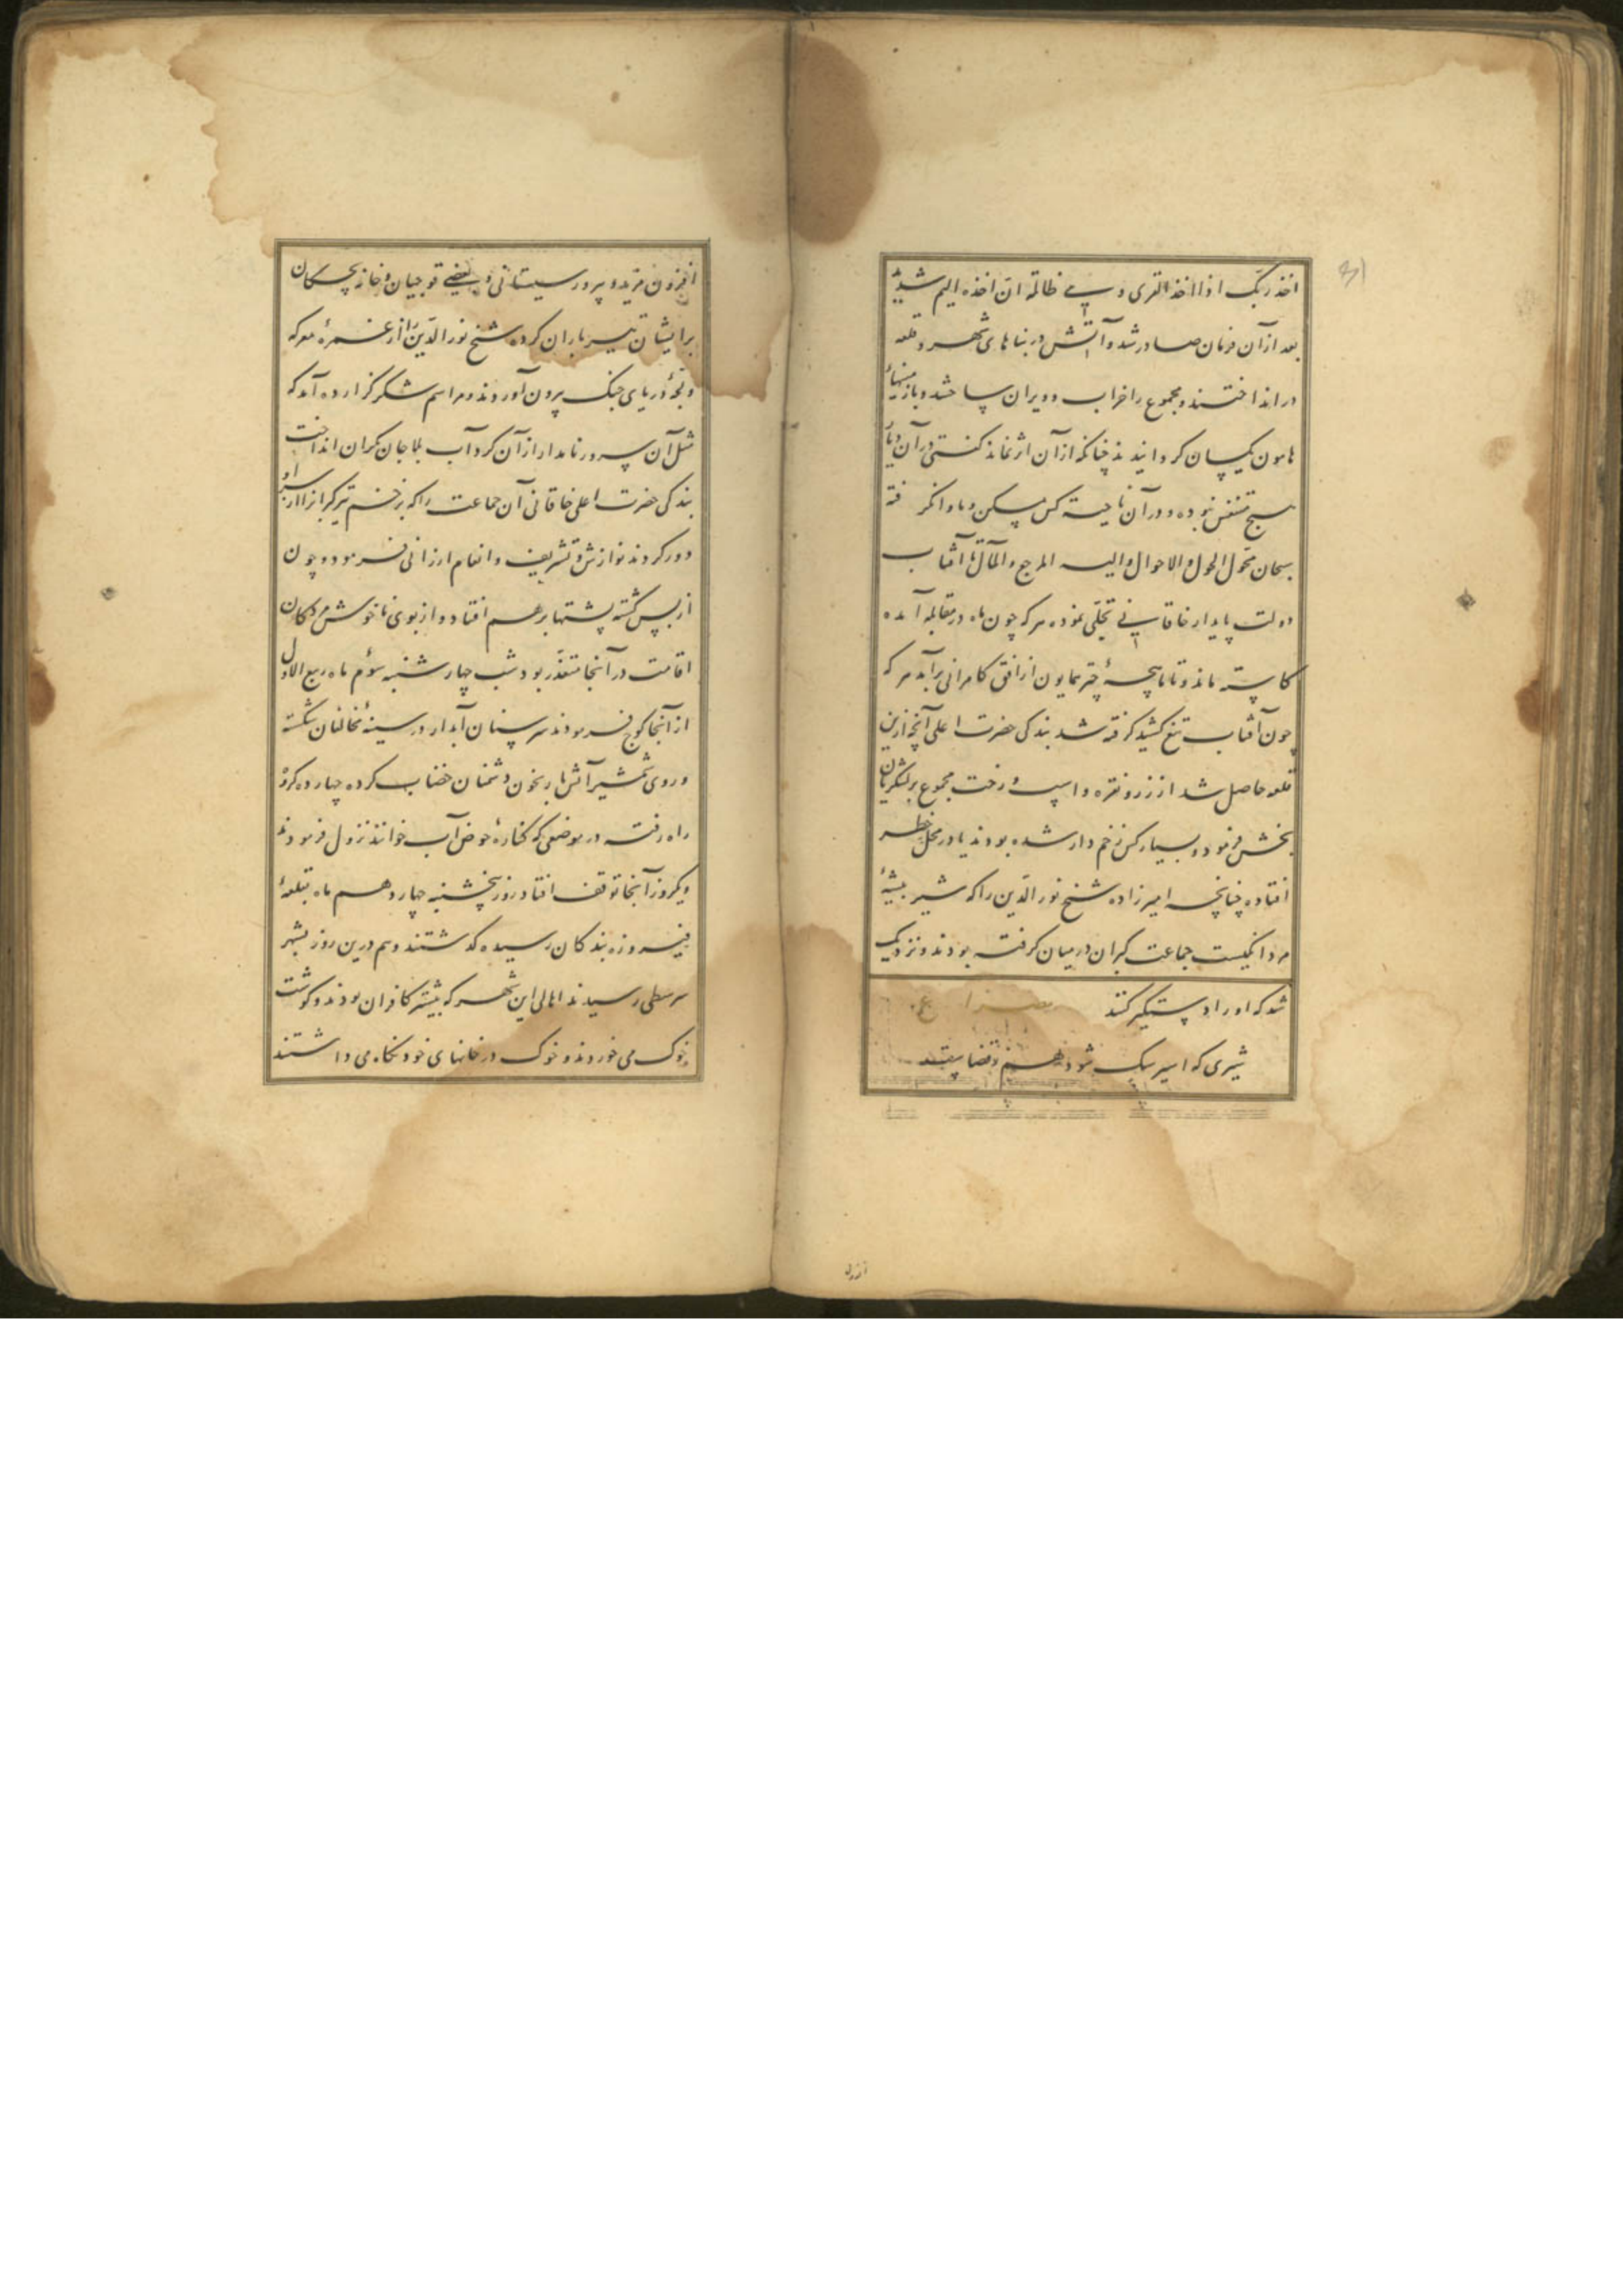 اخذ ربک اذا اخذ القری و هی ظالمة ان اخذه الیم شدید
بعد از آن فرمان صادر شد و آتش در بناهای شهر و قلعه
در انداختند و مجموع را خراب و ویران ساختند و با زمینهاء
هامون یکسان کردانیدند چنانکه از آن اثر نماند کفتی در آن دیار
هیچ متنفس نبوده و در آن ناحیت کس مسکن و ماوا نکرفته
سبحان محول الحول و الاحوال و الیه المرجع و المآل تا آفتاب
دولت پایدار خاقانی تجلی نموده هر که چون ماه در مقابله آمده
کاسته ماند و تا ماهچهٔ چتر همایون از افق کامرانی برآمد هر که
چون آفتاب تیغ کشید کرفته شد بندکی حضرت اعلی آنچه ازین
قلعه حاصل شد از زر و نقره و اسپ و رخت مجموع بر لشکریان
بخش فرمود و بسیار کس زخم دار شده بودند یا در محل خطر
افتاده چنانچه امیرزاده شیخ نور الدین را که شیر بیشهٔ
مردانکیست جماعت کبران در میان کرفته بودند و نزدیک
شد که او را دستکیر کنند مصرع
شیری که اسیر سک شود هم ز قضاست
ازون
افزون مزید و پرور سیستانی و بعضی قوجیان و خانه بچکان
بر ایشان تیر باران کرده شیخ نور الدین را از غمرهٔ معرکه
و لجهٔ دریای جنک بیرون آوردند و مراسم شکر کزارده آمد که
مثل آن سرور نامدار از آن کرد آب بلا جان بکران انداخت
بندکی حضرت اعلی خاقانی آن جماعت را که بزخم تیر کبرانرا از سر او
دور کردند نوازش و تشریف و انعام ارزانی فرمود و چون
از بس کشته پشتها بر هم افتاد و از بوی ناخوش مردکان
اقامت در آنجا متعذر بود شب چهارشنبه سوم ماه ربیع الاول
از آنجا کوچ فرمودند سر سنان آبدار در سینهٔ مخالفان شکسته
و روی شمشیر آتش بار بخون دشمنان خضاب کرده چهارده کروه
راه رفته در موضعی که کنارهٔ حوض آب خوانند نزول فرمودند
و یکروز آنجا توقف افتاد روز پنجشنبه چهاردهم ماه بقلعهٔ
فیروزه بندکان رسیده کذشتند و هم درین روز بشهر
سرسطی رسیدند اهالی این شهر که بیشتر کافران بودند و کوشت
خوک می خوردند و خوک در خانهای خود نکاه می داشتند